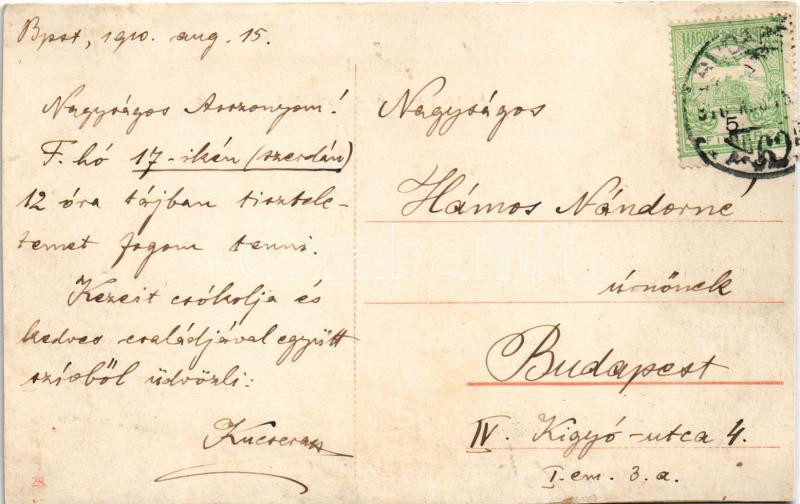 Bpest, 1910. aug. 15.
Nagyságos Asszonyom!
F. hó 17-ikén (szerdán)
12 óra tájban tisztele-
temet fogom tenni.
Kezeit csókolja és
kedves családjával együtt
szívből üdvözli:
Nagyságos
Hámos Nándorné
úrnőnek
Budapest
IV. Kigyó-utca 4.
I. em. 3. a.
darabanth
5
28